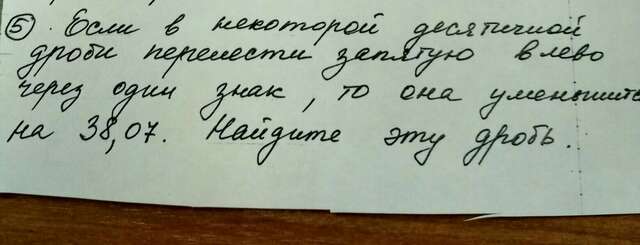 ⑤. Если в некоторой десятичной
дроби перенести запятую влево
через один знак, то она уменьшится
на 38,07. Найдите эту дробь.